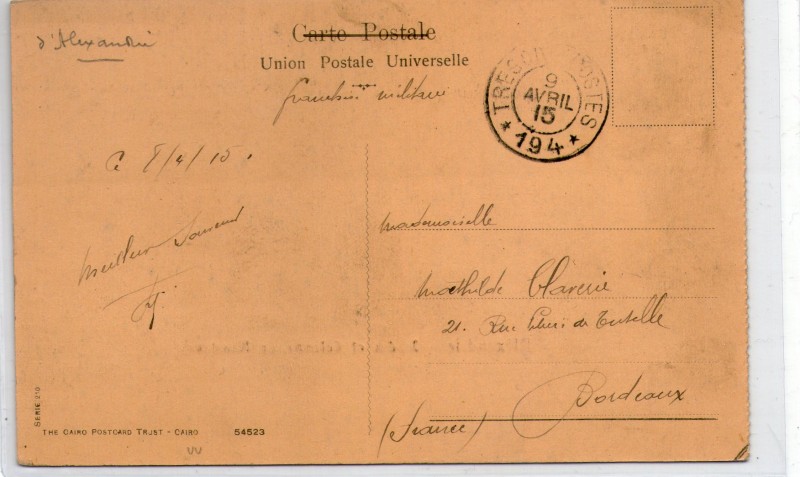 d'Alexandrie
Carte Postale
Union Postale Universelle
franchise militaire
TRESOR POSTES
9
AVRIL
15
* 194 *
C. 8/4/15.
Meilleur Souvenir
Mademoiselle
Mathilde Claverie
21. Rue de
Bordeaux
(France)
SERIE 210
THE CAIRO POSTCARD TRUST - CAIRO 54523